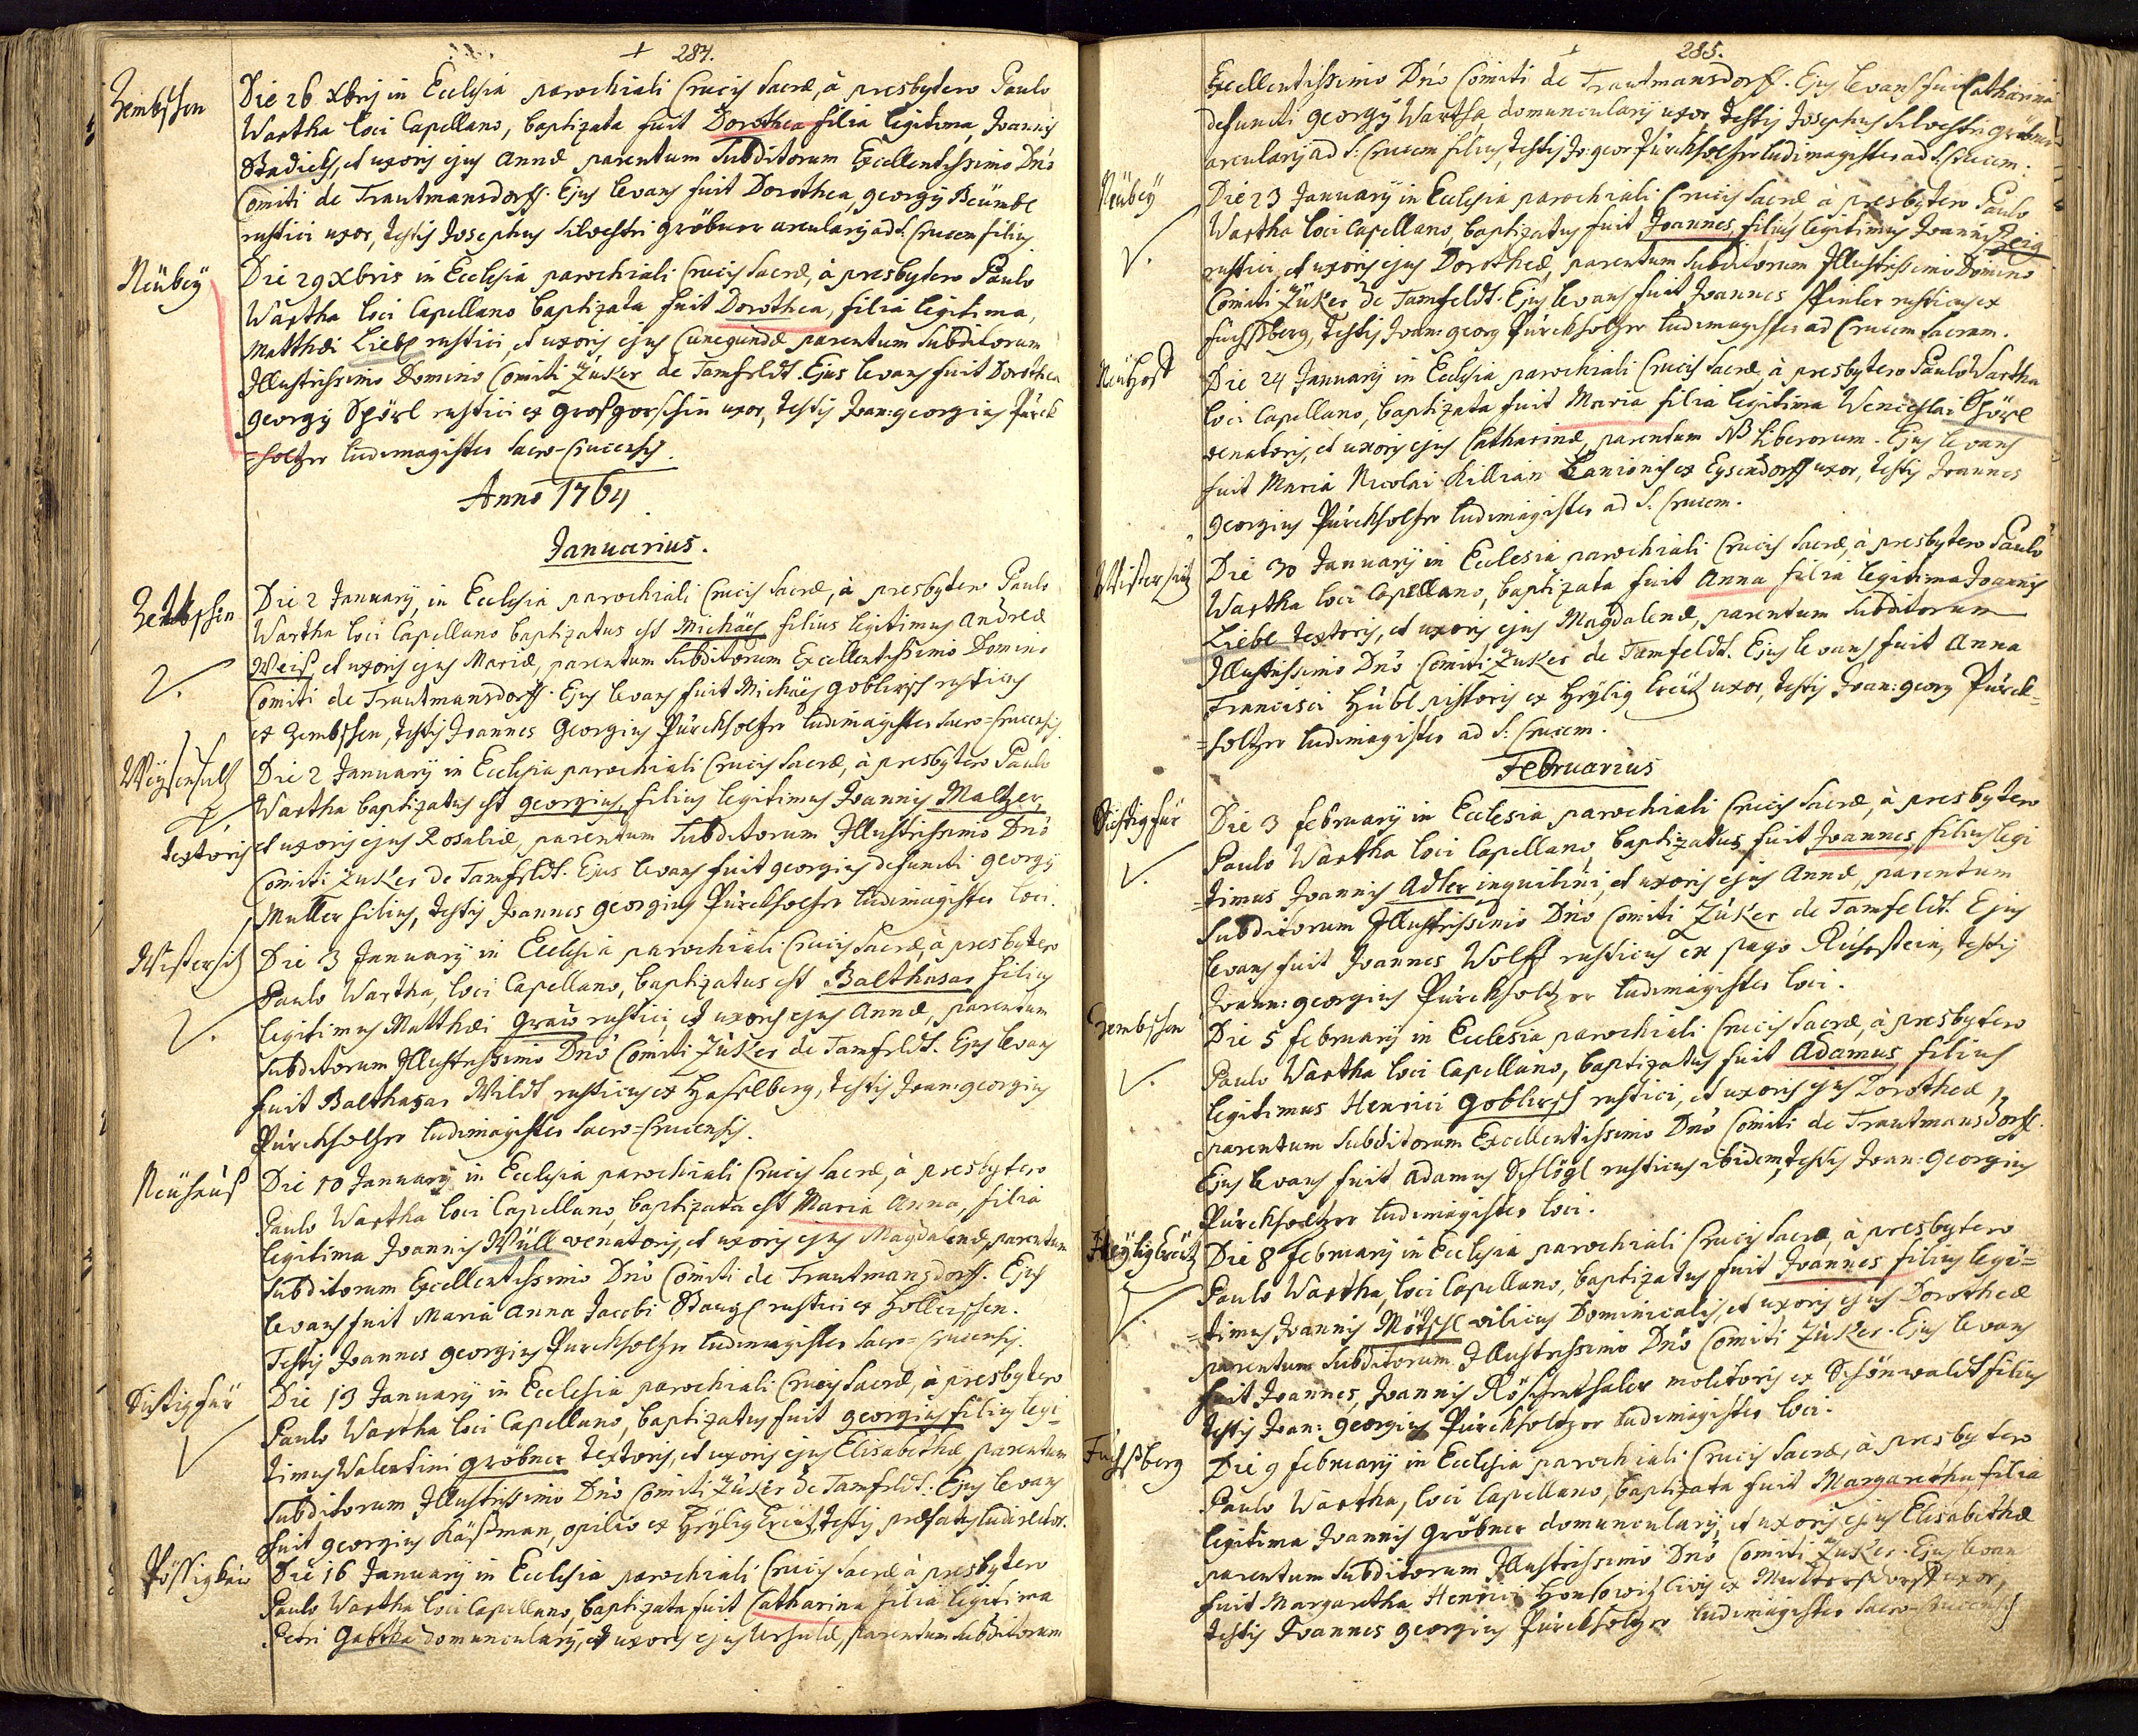 284.
Zembschen
Die 26 Xbris in Ecclesia parochiali Crucis Sacræ, à presbytero Paulo
Wartha loci Capellano, baptizata fuit Dorothea filia legitima Joannis
Stadick, et uxoris ejus Annæ parentum Subditorum Excellentissimo Dnō
Comiti de Trautmansdorff. Ejus levans fuit Dorothea, georgÿ Beümbl
rustici uxor, testis Josephus Silvestri gröbner arcularÿ ad S. Crucem filius.
Neübeÿ
Die 29 Xbris in Ecclesia parochiali Crucis Sacræ, à presbytero Paulo
Wartha loci Capellano baptizata fuit Dorothea, filia legitima,
Matthæi Liebl rustici, et uxoris ejus Cunegundæ parentum Subditorum
Illustrissimo Domino Comiti Zuker de Tamfeldt. Ejus levans fuit Dorothea
georgÿ Spörl rustici ex grosgorschin uxor, testis Joan: georgius Pürck
=holtzer ludimagister Sacro-Crucensis.
Anno 1764
Januarius.
Zembschen
Die 2 Januarÿ, in Ecclesia parochiali Crucis Sacræ, à presbytero Paulo
Wartha loci Capellano baptizatus est Michäes filius legitimus Andreæ
Weiß et uxoris ejus Mariæ, parentum Subditorum Excellentissimo Domino
Comiti de Trautmansdorff. Ejus levans fuit Michäes goblirsch rusticus
ex Zembschen, testis Joannes Georgius Pürckholtzer ludimagister Sacro=Crucensis.
Weÿsensultz
Die 2 Januarÿ in Ecclesia parochiali Crucis Sacræ, à presbytero Paulo
Wartha baptizatus est georgius, filius legitimus Joannis Maltzer,
textoris et uxoris ejus Rosaliæ, parentum Subditorum Illustrissimo Dnō
Comiti Zuker de Tamfeldt. Ejus levans fuit georgius defuncti georgÿ
Muller filius, testis Joannes georgius Pürckholtzer ludimagister loci.
Wistersitz
Die 3 Januarÿ in Ecclesia parochiali Crucis Sacræ, à presbytero
Paulo Wartha, loci Capellano, baptizatus est Balthasar filius
legitimus Matthæi Graw rustici, et uxoris ejus Annæ, parentum
Subditorum Illustrissimo Dnō Comiti Zuker de Tamfeldt. Ejus levans
fuit Balthasar Wildt rusticus ex Haselberg, testis Joan: georgius
Pürckholtzer ludimagister Sacro=Crucensis.
Neühauß
Die 10 Januarÿ in Ecclesia parochiali Crucis Sacræ, à presbytero
Paulo Wartha loci Capellano, baptizata est Maria Anna, filia
legitima Joannis Wüll venatoris, et uxoris ejus Magdalenæ, parentum
Subditorum Excellentissimo Dnō Comiti de Trautmansdorff. Ejus
levans fuit Maria Anna Jacobi Stangl rustici ex Holleischen.
Testis Joannes georgius Pürckholtzer ludimagister Sacro=Crucensis.
Sichtigfür
Die 13 Januarÿ in Ecclesia parochiali Crucis Sacræ, à presbytero
Paulo Wartha loci Capellano, baptizatus fuit georgius filius legi=
timus Valentini gröbner textoris, et uxoris ejus Elisabethæ parentum
Subditorum Illustrissimo Dnō Comiti Zuker de Tamfeldt. Ejus levans
fuit georgius Käßman, opilio ex Heÿlig Creütz, testis præfatus ludirector.
Pössigkau
Die 16 Januarÿ in Ecclesia parochiali Crucis Sacræ à presbytero
Paulo Wartha loci Capellano, baptizata fuit Catharina filia legitima
Petri Gabtha domuncularÿ, et uxoris ejus Ursulæ, parentum Subditorum
285.
Excellentissimo Dnō Comiti de Trautmansdorff. Ejus levans fuit Catharina
defuncti georgÿ Wartha domuncularÿ uxor, testis Josephus Silvestri gröbner
arcularÿ ad S: Crucem filius, testis Jo: geor Pürckholtzer ludimagister ad S. Crucem.
Neübeÿ
Die 23 Januarÿ in Ecclesia parochiali Crucis Sacræ à presbytero Paulo
Wartha loci Capellano, baptizatus fuit Joannes, filius legitimus Joannis Zeig
rustici, et uxoris ejus Dorotheæ, parentum Subditorum Illustrissimo Domino
Comiti Zuker de Tamfeldt. Ejus levans fuit Joannes Pinler rusticus ex
Fuchsberg, testis Joan: georg Pürckholtzer ludimagister ad Crucem Sacram.
Neühost
Die 24 Januarÿ in Ecclesia parochiali Crucis Sacræ, à presbytero Paulo Wartha
loci Capellano, baptizata fuit Maria filia legitima Wenceslai Spörl
venatoris, et uxoris ejus Catharinæ, parentum NB liberorum. Ejus levans
fuit Maria Nicolai Killian Lanionis ex Eysendorff uxor, testis Joannes
georgius Pürckholtzer ludimagister ad S. Crucem.
Wistersitz
Die 30 Januarÿ in Ecclesia parochiali Crucis Sacræ, à presbytero Paulo
Wartha loci Capellano, baptizata fuit Anna filia legitima Joannis
Liebl textoris, et uxoris ejus Magdalenæ, parentum Subditorum
Illustrissimo Dnō Comiti Zuker de Tamfeldt. Ejus levans fuit Anna
Francisci Hübl pistoris ex Heÿlig Creütz uxor, testis Joan: georg Pürck=
=holtzer ludimagister ad S: Crucem.
Februarius
Sichtigfür
Die 3 februarÿ in Ecclesia parochiali Crucis Sacræ, à presbytero
Paulo Wartha loci Capellano, baptizatus fuit Joannes, filius legi
=timus Joannis Adler inquilini, et uxoris ejus Annæ, parentum
Subditorum Illustrissimo Dnō Comiti Zuker de Tamfeldt. Ejus
levans fuit Joannes Wolff rusticus ex pago Ruhestein, testis
Joann: georgius Pürckholtzer ludimagister loci.
Zembschen
Die 5 februarÿ in Ecclesia parochiali Crucis Sacræ, à presbytero
Paulo Wartha loci Capellano, baptizatus fuit Adamus, filius
legitimus Henrici Goblirsch rustici, et uxoris ejus Dorotheæ,
parentum Subditorum Excellentissimo Dnō Comiti de Trautmansdorff.
Ejus levans fuit Adamus Schlögl rusticus ibidem, testis Joan: Georgius
Pürckholtzer ludimagister loci.
Heÿligkreütz
Die 8 februarÿ in Ecclesia parochiali Crucis Sacræ, à presbytero
Paulo Wartha, loci Capellano, baptizatus fuit Joannes filius legi=
=timus Joannis Mötschl vilicus Dominicalis, et uxoris ejus Dorotheæ
parentum Subditorum Illustrissimo Dnō Comiti Zuker. Ejus levans
fuit Joannes, Joannis Röschenthaler molitoris ex Schönwaldt filius
testis Joan: georgius Pürckholtzer ludimagister loci.
Fuchsberg
Die 9 februarÿ in Ecclesia parochiali Crucis Sacræ, à presbytero
Paulo Wartha, loci Capellano, baptizata fuit Margaretha, filia
legitima Joannis Gröbner domuncularÿ, et uxoris ejus Elisabethæ
parentum Subditorum Illustrissimo Dnō Comiti Zuker. Ejus levans
fuit Margaretha Henrici civis ex uxor,
testis Joannes georgius Pürckholtzer ludimagister Sacro-Crucensis